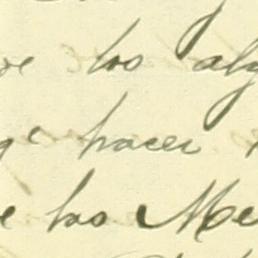 los alg
hacer
e las Me